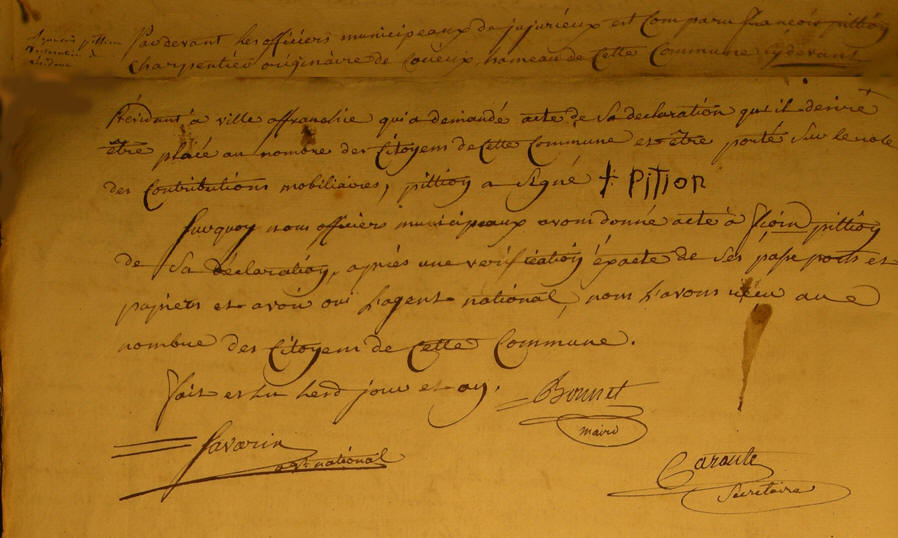 françois pittion
Par devant les officiers municipaux de jujurieux est Comparu françois pittion
Charpentier originaire de Coüeux, hameau de Cette Commune cydevant
Résidant à ville affranchie qui a demandé acte de Sa declaration qu'il desire
être placé au nombre des Citoyens de Cette Commune et être porté Sur le role
des Contributions mobiliaires, pittion a Signé + PITTION
Surquoy nous officiers municipaux avons donné acte à pittion
de Sa déclaration, après une verification éxacte de Ses passe ports et
papiers et avoir oui L'agent national, nous L'avons reçu au
nombre des Citoyens de Cette Commune.
Fait et Lu Lesd jour et an.
Bonnet
maire
Savarin
agt national
Caraule
Secretaire